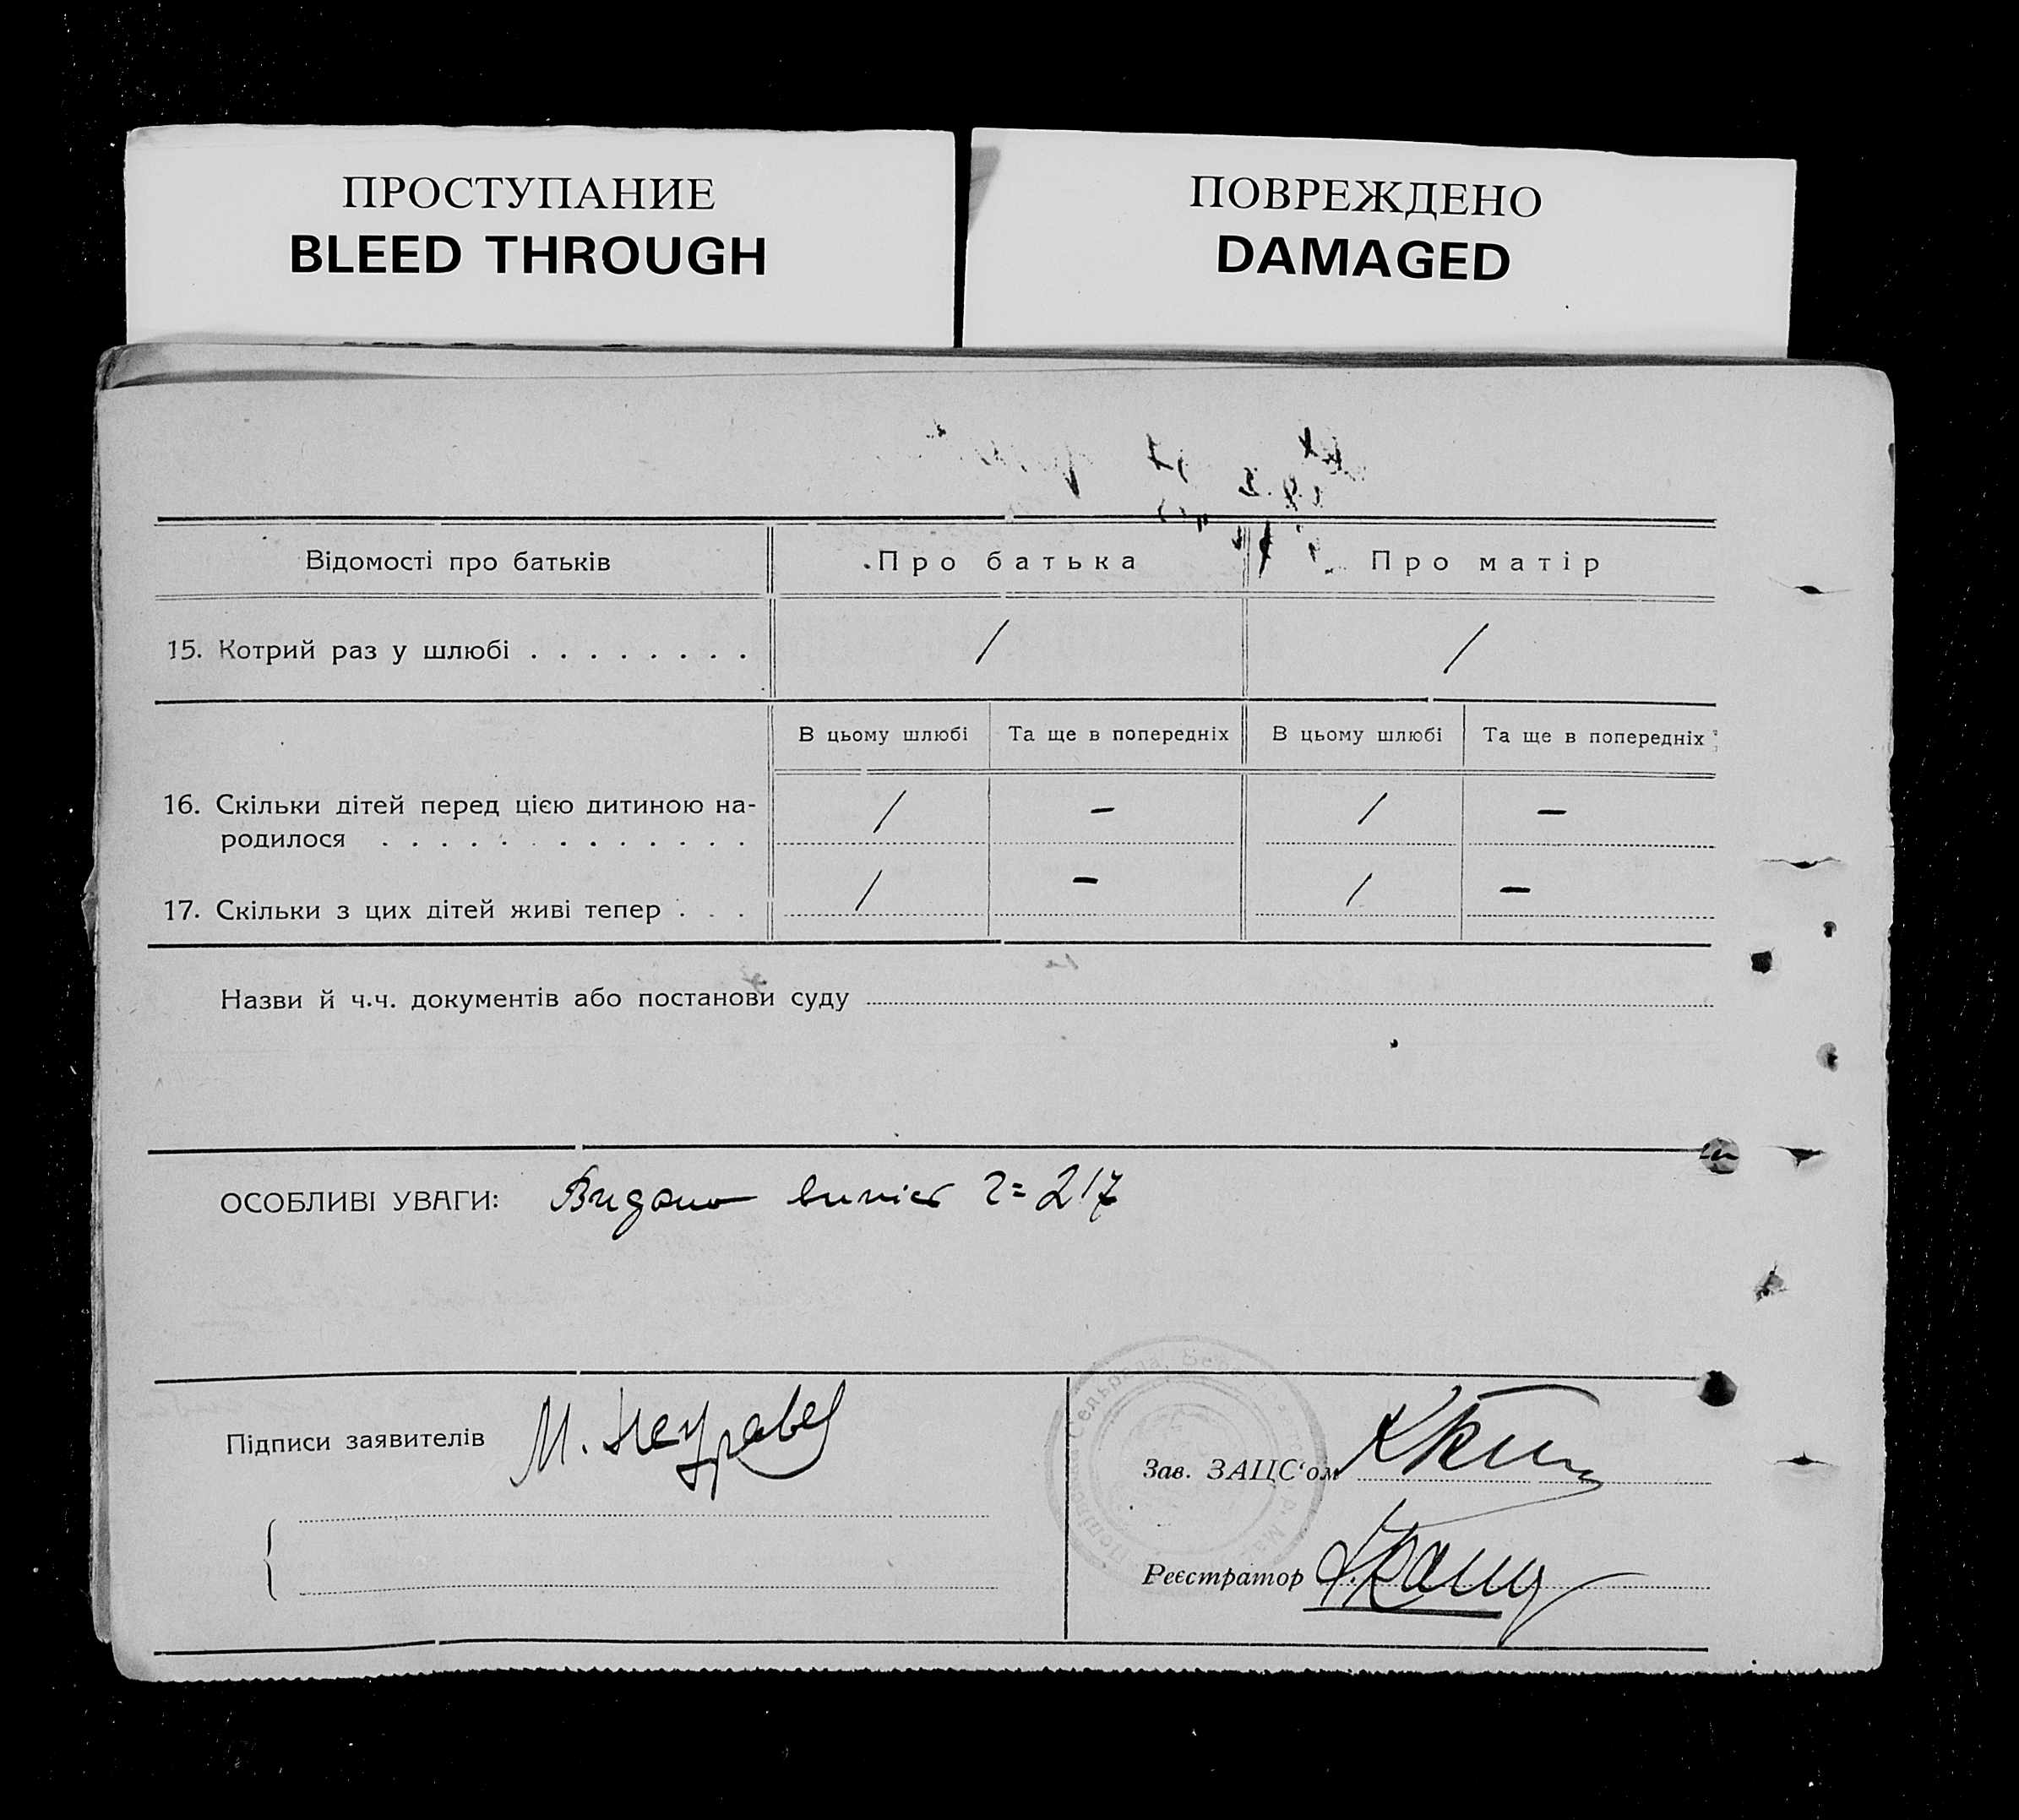 ПРОСТУПАНИЕ
BLEED THROUGH
ПОВРЕЖДЕНО
DAMAGED
Відомості про батьків
Про батька
Про матір
15. Котрий раз у шлюбі . . . . . . . .
/
/
В цьому шлюбі
Та ще в попередніх
В цьому шлюбі
Та ще в попередніх
16. Скільки дітей перед цією дитиною на-
родилося . . . . . . . . . . . . .
/
–
/
–
17. Скільки з цих дітей живі тепер . . .
/
–
/
–
Назви й ч.ч. документів або постанови суду
ОСОБЛИВІ УВАГИ: Видано 217
Підписи заявителів М.
Зав. ЗАЦС'ом
Реєстратор